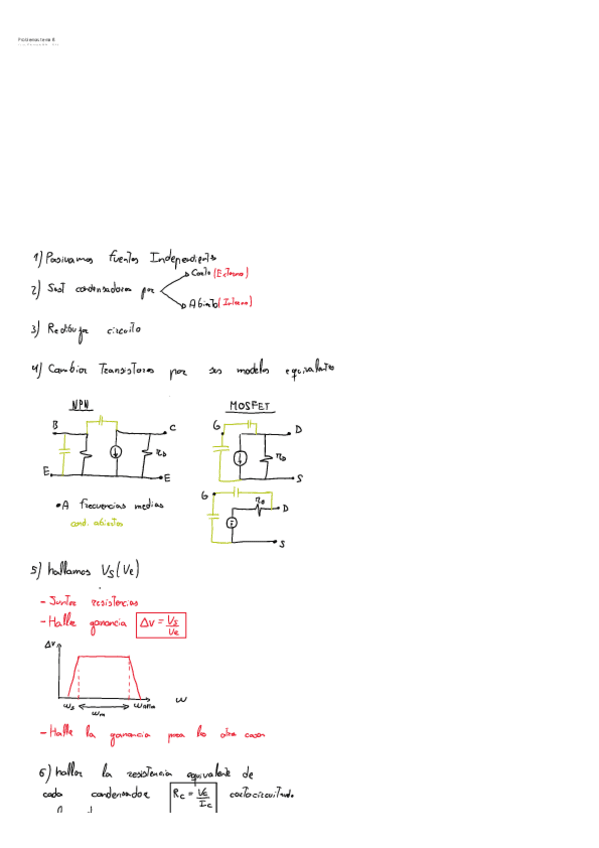 Problemas tema 8
1) Pasivamos fuentes Independients
Corto (Externo)
2) Sust condensadores por
Abierto (Interno)
3) Redibujar circuito
4) Cambiar Transistores por sus modelos equivalentes
NPN
MOSFET
B
C
G
D
r₀
r₀
E
E
S
• A frecuencias medias
cond. abiertos
G
r₀
D
S
5) hallamos Vs(Ve)
- Juntar resistencias
- Hallar ganancia Δv = Vs/Ve
Δv
ωs
ωm
W
- Hallar la ganancia para lo otro caso
6) hallar la resistencia equivalente de
cada condensador Rc = Ve/Ic cortocircuitando